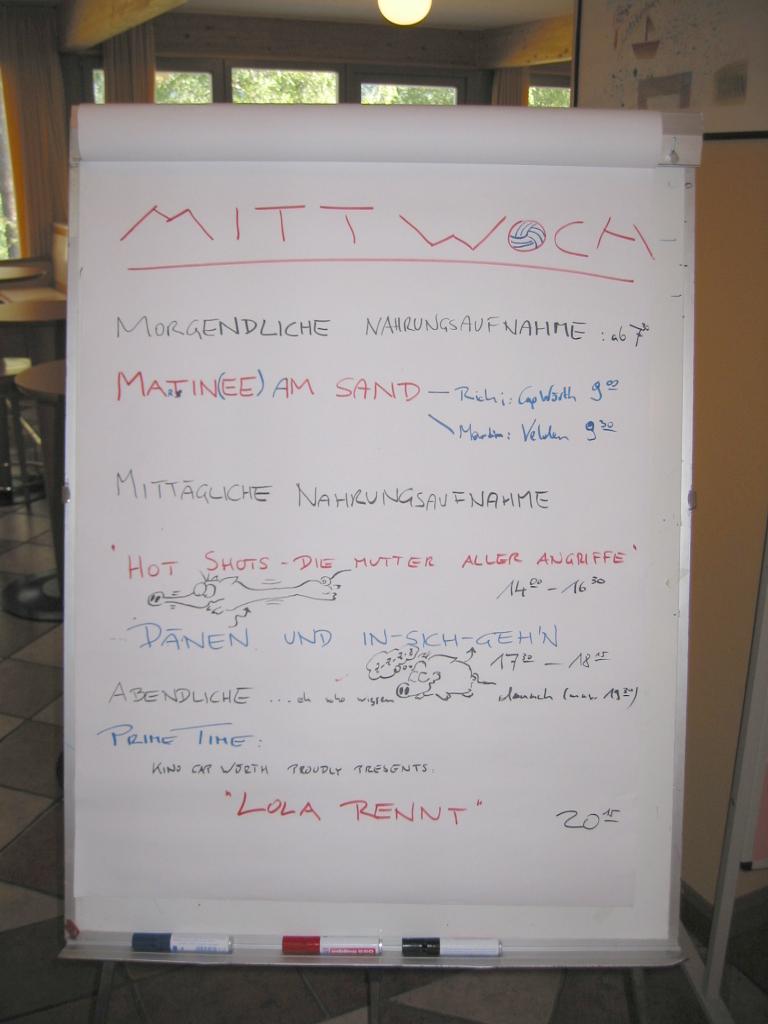 MITTWOCH
MORGENDLICHE NAHRUNGSAUFNAHME : ab 7³⁰
MATIN(EE) AM SAND — Richi: Cap Wörth 9⁰⁰
Martin: Velden 9³⁰
MITTÄGLICHE NAHRUNGSAUFNAHME
"HOT SHOTS - DIE MUTTER ALLER ANGRIFFE"
14⁰⁰ - 16³⁰
DÄNEN UND IN-SICH-GEH'N
17³⁰ - 18¹⁵
ABENDLICHE ... eh who wissen danach (max. 19³⁰)
PRIME TIME:
KINO CAP WÖRTH PROUDLY PRESENTS:
"LOLA RENNT" 20¹⁵